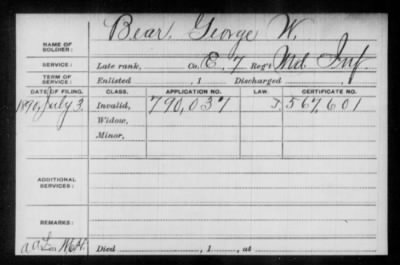 NAME OF SOLDIER: Bear, George W.
SERVICE: Late rank, Co. E, 7 Reg't Md Inf.
TERM OF SERVICE: Enlisted , 1 Discharged , 1
DATE OF FILING. CLASS. APPLICATION NO. LAW. CERTIFICATE NO.
1890, July 3. Invalid, 790,037 J. 567,601
Widow,
Minor,
ADDITIONAL SERVICES:
REMARKS:
Died , 1 , at